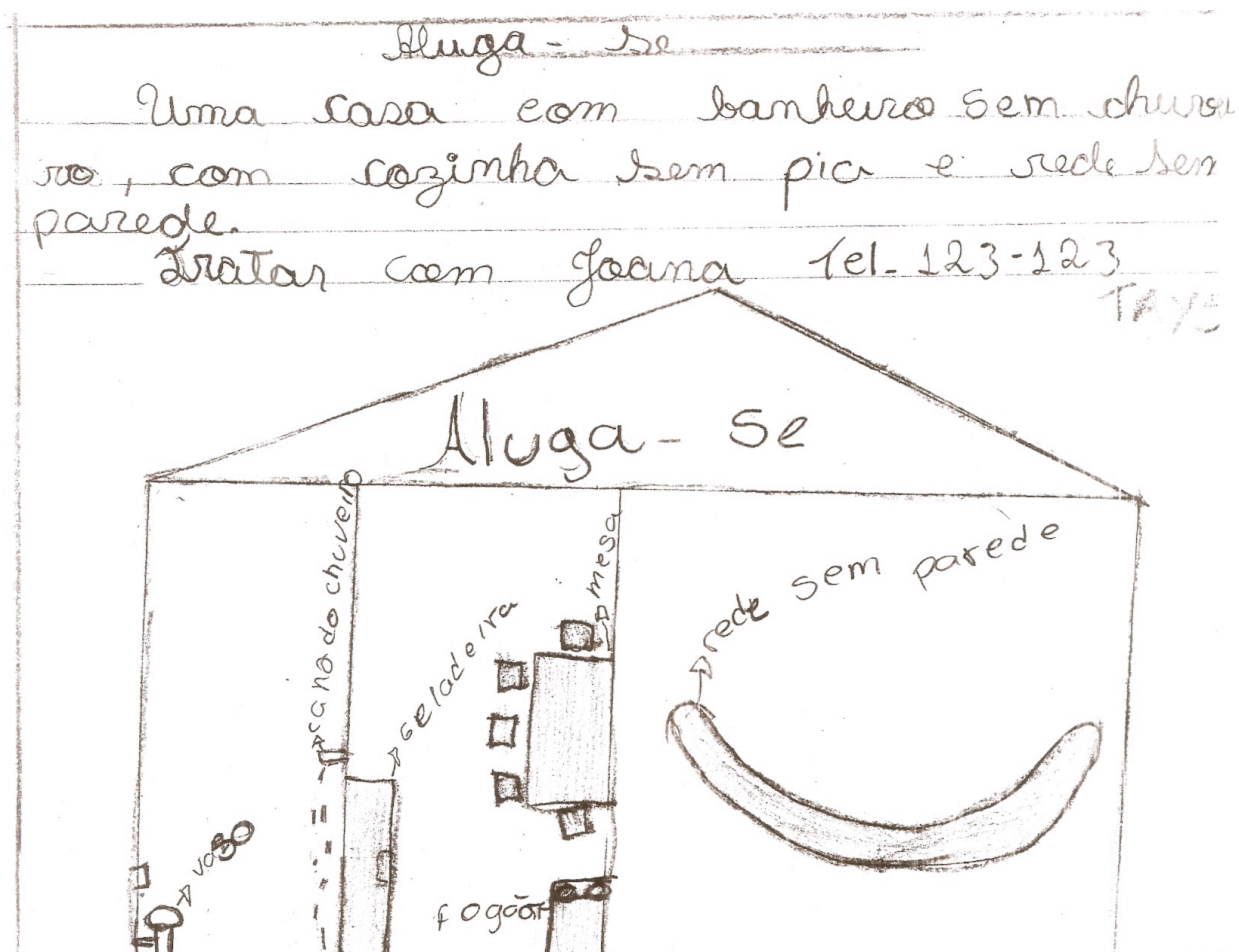 Aluga - se
Uma casa com banheiro sem chuvei
ro, com cozinha sem pia e rede sem
parede.
Tratar com Joana Tel. 123-123
TAYS
Aluga - Se
cano do chuveiro
geladeira
mesa
rede sem parede
vaso
fogão